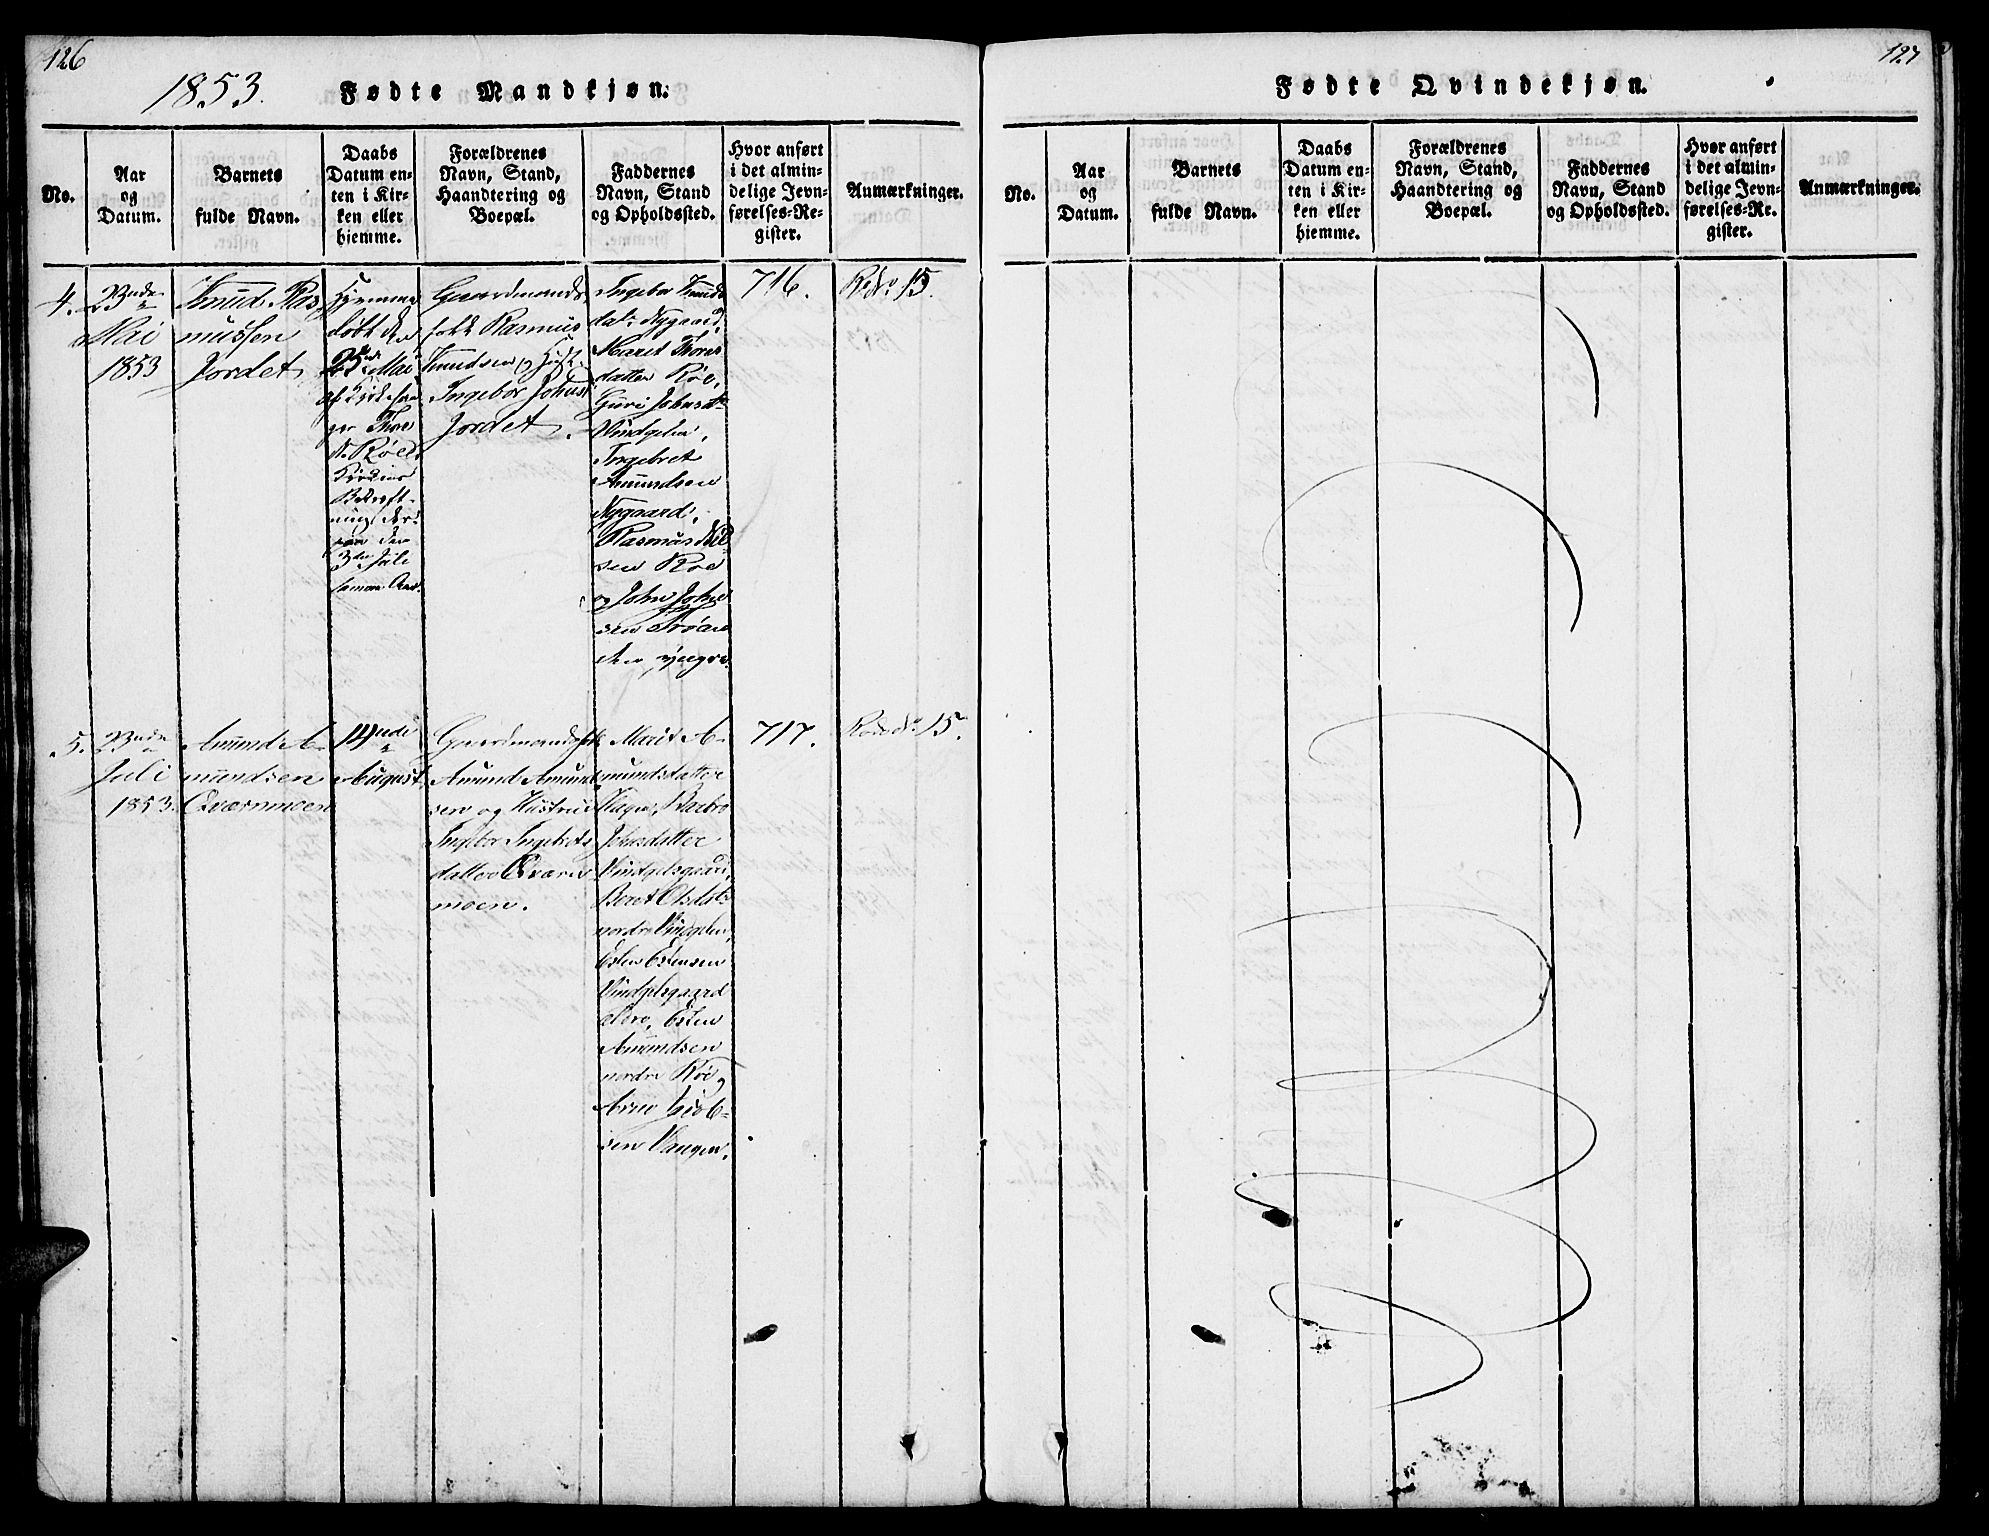 126
1853.
Fødte Mandkjøn.
No.
Aar
og
Datum.
Barnets
fulde Navn.
Daabs
Datum en-
ten i Kir-
ken eller
hjemme.
Forældrenes
Navn, Stand,
Haandtering og
Boepæl.
Faddernes
Navn, Stand
og Opholdssted.
Hvor anført
i det almin-
delige Jevn-
førelses-Re-
gister.
Anmærkninger.
4.
23
Mai
1853
Knud Ras
mussen
Jordet
Hjemme
døbt den
25 Mai
af Kirkesan
ger Thore
N. Røe
Kirkens
Bekræft-
ning der
paa den
3die Juli
samme Aar.
Gaardmands
folk Rasmus
Knudsen og Hust.
Ingebor Johns
Jordet.
Ingebor Knuds
datr Nygaard,
Maret Thores
datter Røe,
Guri Johnsdr
Vindgelen,
Ingebret
Amundsen
Nygaard,
Rasmus Nil
sen Røe
og John John
sen Trøen
den yngre.
716.
Rode No 15.
5.
23
Juli
1853.
Amund A-
mundsen
Qværnmoen
14
August
Gaardmandsfolk
Amund Amund
sen og Hustrue
Ingebor Ingebrets
datter Qværn
moen.
Marit A-
mundsdatter
Hagen, Barbro
Johnsdatter
Vindgelsgaard,
Beret Olsdatr
nordre Vingelen,
Esten Estensen
Vindgelsgaard
store, Esten
Amundsen
nordre Røe
Arne Jacob-
sen Vangen.
717.
Rode No 15.
127
Fødte Qvindekjøn.
No.
Aar
og
Datum.
Barnets
fulde Navn.
Daabs
Datum en-
ten i Kir-
ken eller
hjemme.
Forældrenes
Navn, Stand,
Haandtering og
Boepæl.
Faddernes
Navn, Stand
og Opholdssted.
Hvor anført
i det almin-
delige Jevn-
førelses-Re-
gister.
Anmærkninger.